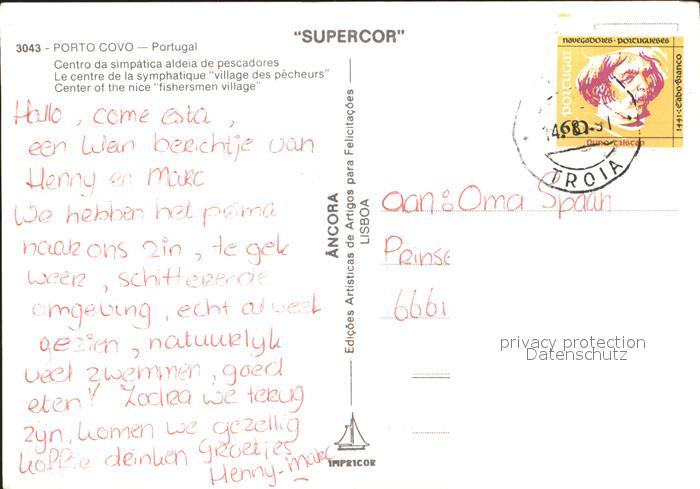 "SUPERCOR"
3043 - PORTO COVO — Portugal
Centro da simpática aldeia de pescadores
Le centre de la symphatique "village des pêcheurs"
Center of the nice "fishermen village"
Hallo, come esta,
een klein berichtje van
Henny en Marc
We hebben het prima
naar ons zin, te gek
weer, schitterende
omgeving, echt al veel
gezien, natuurlyk
veel zwemmen, goed
eten! Zodra we terug
zyn, komen we gezellig
koffie drinken Groetjes
Henny-Marc
ÂNCORA
Edições Artísticas de Artigos para Felicitações
LISBOA
IMPRICOR
NAVEGADORES PORTUGUESES
PORTUGAL
1441 Cabo Branco
NUNO TRISTÃO
TROIA
aan: Oma Spaan
Prinse
6661
privacy protection
Datenschutz